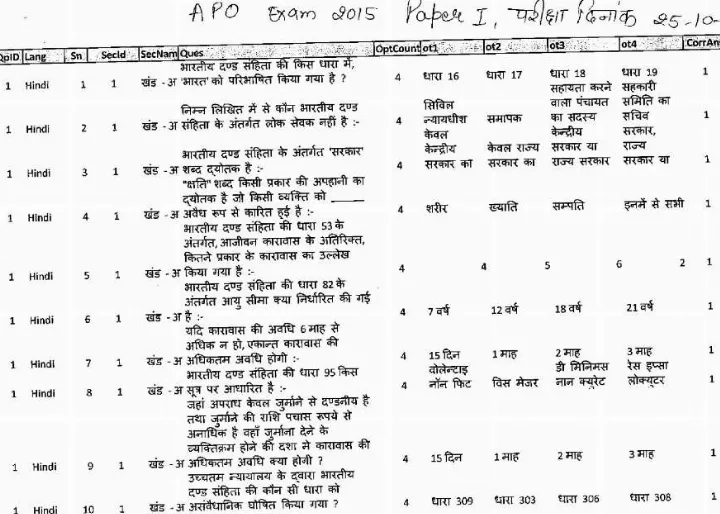 APO Exam 2015 Paper I, परीक्षा दिनांक 25-10-
QpID Lang Sn SecId SecNam Ques OptCount ot1 ot2 ot3 ot4 CorrAn
भारतीय दण्ड संहिता की किस धारा में,
1 Hindi 1 1 खंड - अ 'भारत' को परिभाषित किया गया है ? 4 धारा 16 धारा 17 धारा 18 धारा 19 1
सहायता करने सहकारी
निम्न लिखित में से कौन भारतीय दण्ड सिविल वाला पंचायत समिति का
1 Hindi 2 1 खंड - अ संहिता के अंतर्गत लोक सेवक नहीं है :- 4 न्यायधीश समापक का सदस्य सचिव 1
केवल केन्द्रीय सरकार,
भारतीय दण्ड संहिता के अंतर्गत 'सरकार' केन्द्रीय केवल राज्य सरकार या राज्य
1 Hindi 3 1 खंड - अ शब्द द्योतक है :- 4 सरकार का सरकार का राज्य सरकार सरकार या 1
"क्षति" शब्द किसी प्रकार की अपहानी का
द्योतक है जो किसी व्यक्ति को ______
1 Hindi 4 1 खंड - अ अवैध रूप से कारित हुई है :- 4 शरीर ख्याति सम्पति इनमें से सभी 1
भारतीय दण्ड संहिता की धारा 53 के
अंतर्गत, आजीवन कारावास के अतिरिक्त,
कितने प्रकार के कारावास का उल्लेख
1 Hindi 5 1 खंड - अ किया गया है :- 4 4 5 6 2 1
भारतीय दण्ड संहिता की धारा 82 के
अंतर्गत आयु सीमा क्या निर्धारित की गई
1 Hindi 6 1 खंड - अ है :- 4 7 वर्ष 12 वर्ष 18 वर्ष 21 वर्ष 1
यदि कारावास की अवधि 6 माह से
अधिक न हो, एकान्त कारावास की
1 Hindi 7 1 खंड - अ अधिकतम अवधि होगी :- 4 15 दिन 1 माह 2 माह 3 माह 1
भारतीय दण्ड संहिता की धारा 95 किस वोलेन्टाइ डी मिनिमस रेस इप्सा
1 Hindi 8 1 खंड - अ सूत्र पर आधारित है :- 4 नॉन फिट विस मेजर नान क्यूरेट लोक्यूटर 1
जहां अपराध केवल जुर्माने से दण्डनीय है
तथा जुर्माने की राशि पचास रूपये से
अनाधिक है वहाँ जुर्माना देने के
व्यक्तिक्रम होने की दशा मे कारावास की
1 Hindi 9 1 खंड - अ अधिकतम अवधि क्या होगी ? 4 15 दिन 1 माह 2 माह 3 माह 1
उच्चतम न्यायालय के द्वारा भारतीय
दण्ड संहिता की कौन सी धारा को
1 Hindi 10 1 खंड - अ असंवैधानिक घोषित किया गया ? 4 धारा 309 धारा 303 धारा 306 धारा 308 1